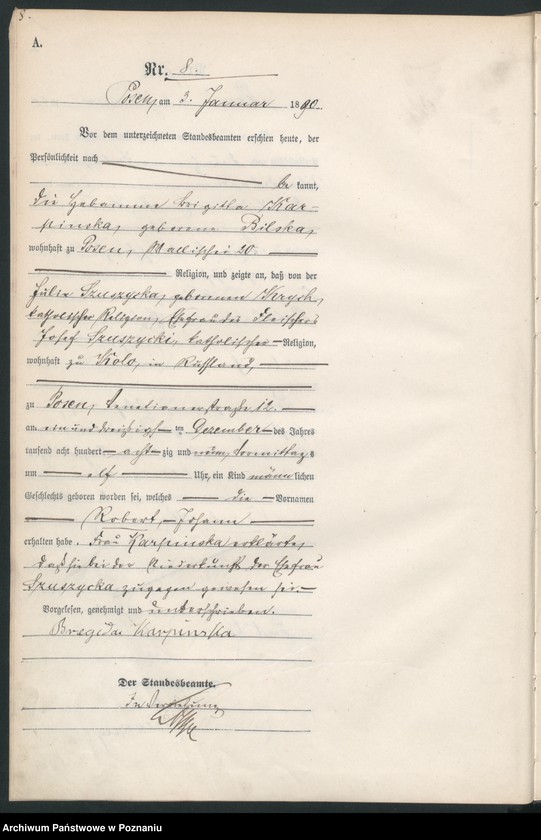 8.
A.
Nr. 8.
Posen, am 3. Januar 1890.
Vor dem unterzeichneten Standesbeamten erschien heute, der
Persönlichkeit nach
be kannt,
die Hebamme Brigitta Kar-
pinska, geborene Bilska,
wohnhaft zu Posen, Wallischei 20.
Religion, und zeigte an, daß von der
Julie Szuszycka, geborenen Krych,
katholischer Religion, Ehefrau des Fleischers
Josef Szuszycki, katholischer Religion,
wohnhaft zu Kolo, in Russland,
zu Posen, Venetianerstraße 12.
am ein und dreißigsten Dezember des Jahres
tausend acht hundert acht zig und neun, Vormittags
um elf Uhr, ein Kind männ lichen
Geschlechts geboren worden sei, welches die Vornamen
Robert Johann
erhalten habe. Frau Karpinska erklärte,
daß sie bei der Niederkunft der Ehefrau
Szuszycka zugegen gewesen sei.
Vorgelesen, genehmigt und unterschrieben.
Bregida Karpinska
Der Standesbeamte.
In Vertretung
Archiwum Państwowe w Poznaniu